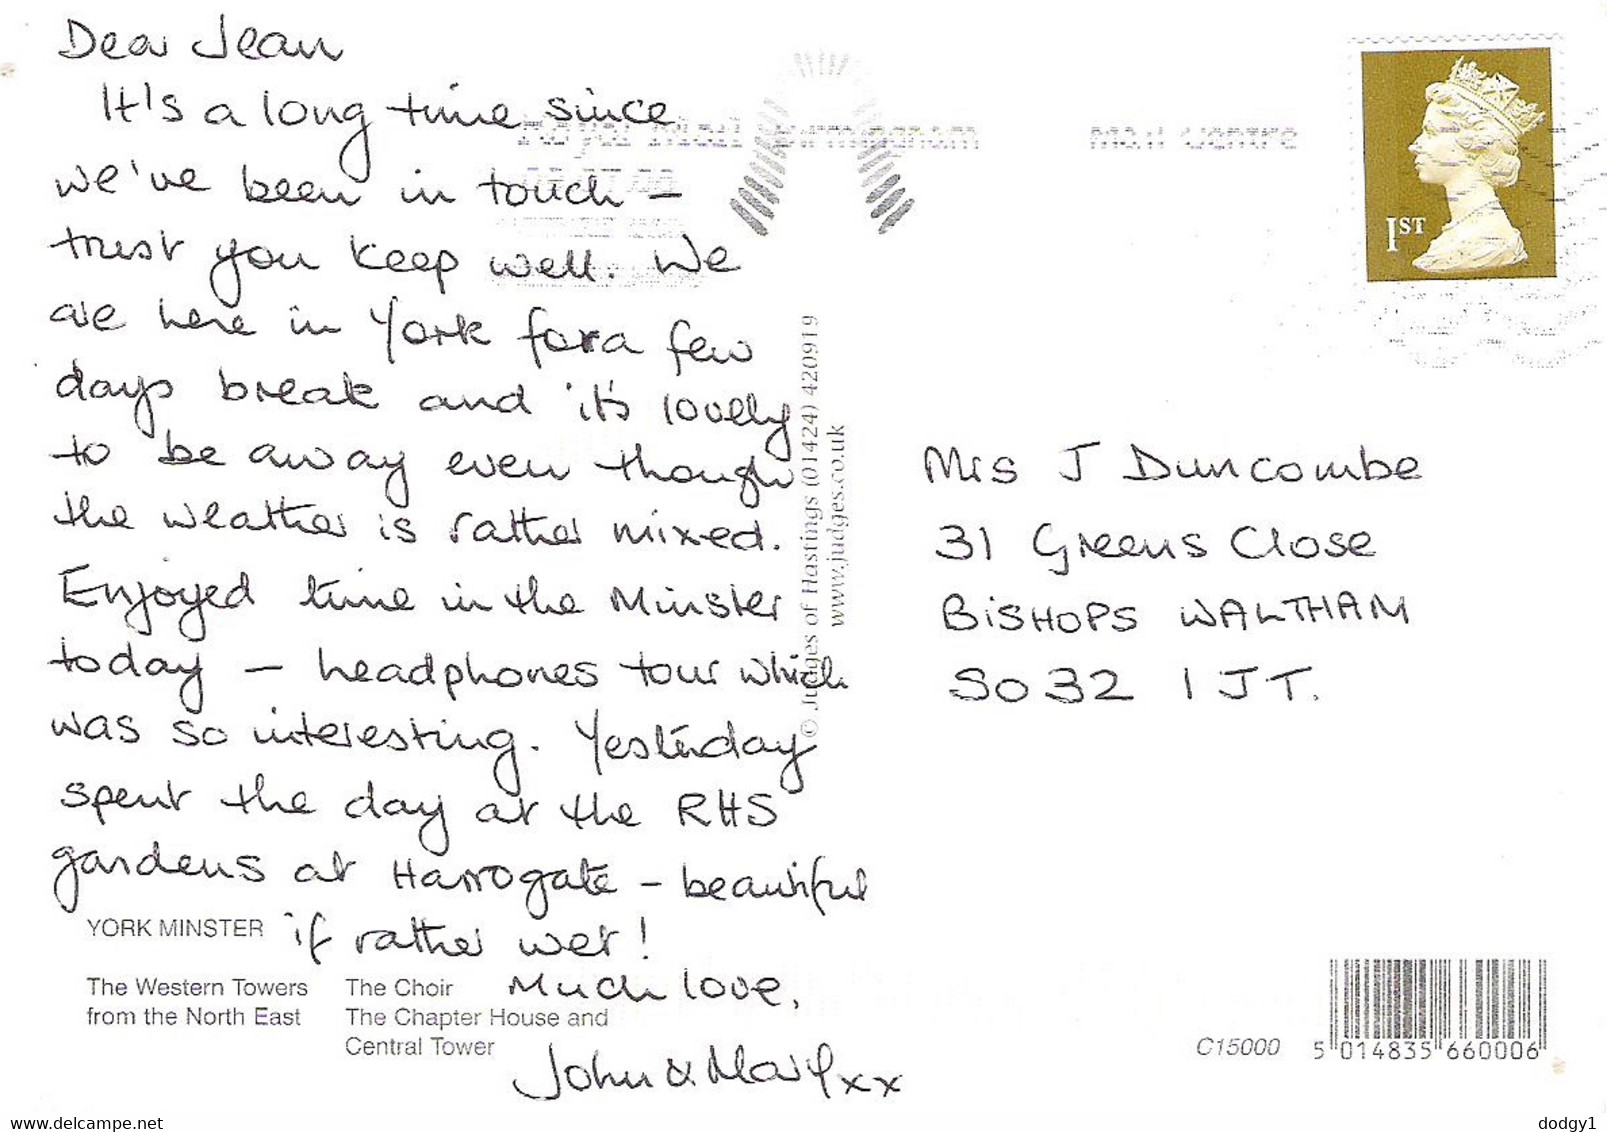 Dear Jean
It's a long time since
we've been in touch –
trust you keep well. We
are here in York for a few
days break and it's lovely
to be away even though
the weather is rather mixed.
Enjoyed time in the Minster
today – headphones tour which
was so interesting. Yesterday
spent the day at the RHS
gardens at Harrogate – beautiful
if rather wet!
Much love,
John & Mary xx
YORK MINSTER
The Western Towers
from the North East
The Choir
The Chapter House and
Central Tower
© Judges of Hastings (01424) 420919
www.judges.co.uk
Royal Mail Birmingham Mail Centre
1ST
Mrs J Duncombe
31 Greens Close
BISHOPS WALTHAM
SO32 1JT.
C15000
5 014835 660006
www.delcampe.net
dodgy1